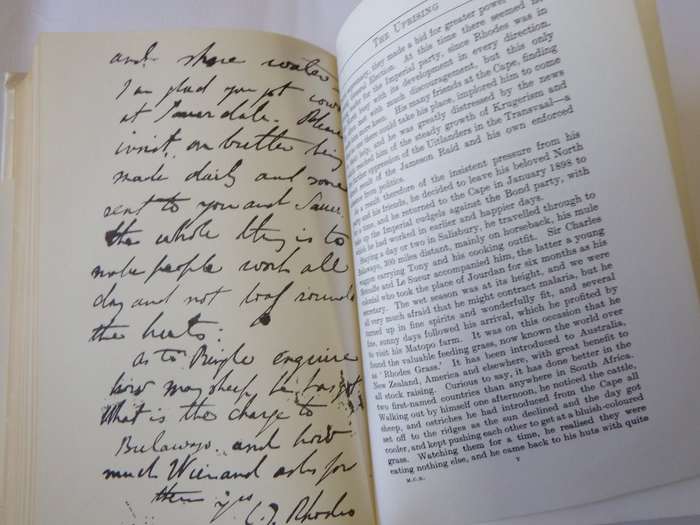 and shore water
I am glad you got cows
at Sauerdale. Please
insist on butter being
made daily and some
sent to you and Sauer.
the whole thing is to
make people work all
day and not loaf round
the huts.
as to enquire
how many sheep he has got
What is the charge to
Bulawayo and how
much Wienand asks for
them Yrs
C. J. Rhodes
THE UPRISING
they made a bid for greater power
general election. At this time there seemed no
for the Imperial party, since Rhodes was in
with its development in every direction.
with much discouragement, but this only
more keen. His many friends at the Cape, finding
could take his place, implored him to come
help, and he was greatly distressed by the news
reached him of the steady growth of Krugerism and
further oppression of the Uitlanders in the Transvaal—a
result of the Jameson Raid and his own enforced
from politics.
As a result therefore of the insistent pressure from his
party and his friends, he decided to leave his beloved North
and he returned to the Cape in January 1898 to
the Imperial cudgels against the Bond party, with
he had worked in earlier and happier days.
Staying a day or two in Salisbury, he travelled through to
Bulawayo, 300 miles distant, mainly on horseback, his mule
wagon carrying Tony and his cooking outfit. Sir Charles
Metcalfe and Le Sueur accompanied him, the latter a young
colonial who took the place of Jourdan for six months as his
The wet season was at its height, and we were
all very much afraid that he might contract malaria, but he
turned up in fine spirits and wonderfully fit, and several
fine, sunny days followed his arrival, which he profited by
to visit his Matopo farm. It was on this occasion that he
found the valuable feeding grass, now known the world over
as 'Rhodes Grass.' It has been introduced to Australia,
New Zealand, America and elsewhere, with great benefit to
all stock raising. Curious to say, it has done better in the
two first-named countries than anywhere in South Africa.
Walking out by himself one afternoon, he noticed the cattle,
sheep, and ostriches he had introduced from the Cape all
set off to the ridges as the sun declined and the day got
cooler, and kept pushing each other to get at a bluish-coloured
grass. Watching them for a time, he realised they were
eating nothing else, and he came back to his huts with quite
M.C.R. Y